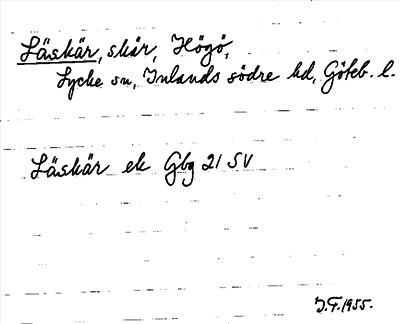 Läskär, skär, Högö,
Lycke sn, Inlands södre hd, Göteb. l.
Läskär ek Gbg 21 SV
J.F. 1955.